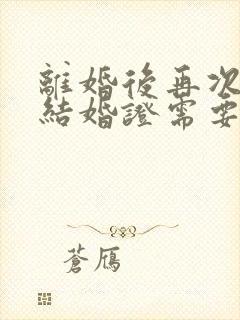 離婚後再次
結婚證需要
蒼鴈